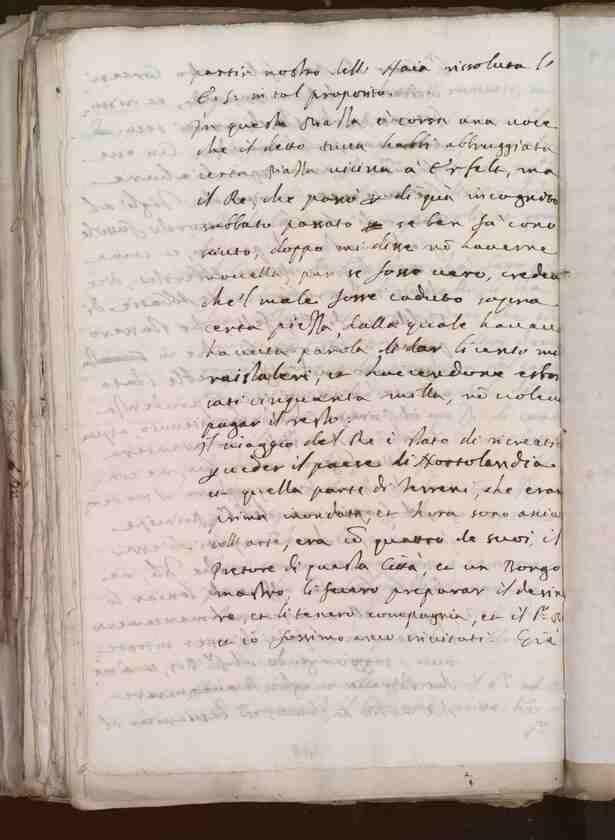 partir nostro dell' Haia rissoluta l'
in tal proposito.
In questa piazza è corsa una voce
che il detto Duca habbi abbruggiata
certa piazza vicina à Erfelt, ma
il Re, che passò di quà incognito
sabbato passato se ben fù cono
sciuto, doppo mi disse nõ haverne
novella, pur se fosse vero, credea
che 'l male fosse caduto sopra
certa piazza, dalla quale havea
havuta parola di dar li cento mi
raistaleri, et havendone esbor
sati cinquanta milla, nõ volea
pagar il resto.
Il viaggio del Re è stato di ricreati
veder il paese di Nortolandia
et quella parte di terreni, che eran
prima inondata, et hora sono asciu
coll' arte, era cõ quattro de suoi, il
Pretore di questa Città, et un Borgo
mastro, li fecero preparar il desin
re, et li tenero compagnia, et il
et io fossimo anco invitati. Già